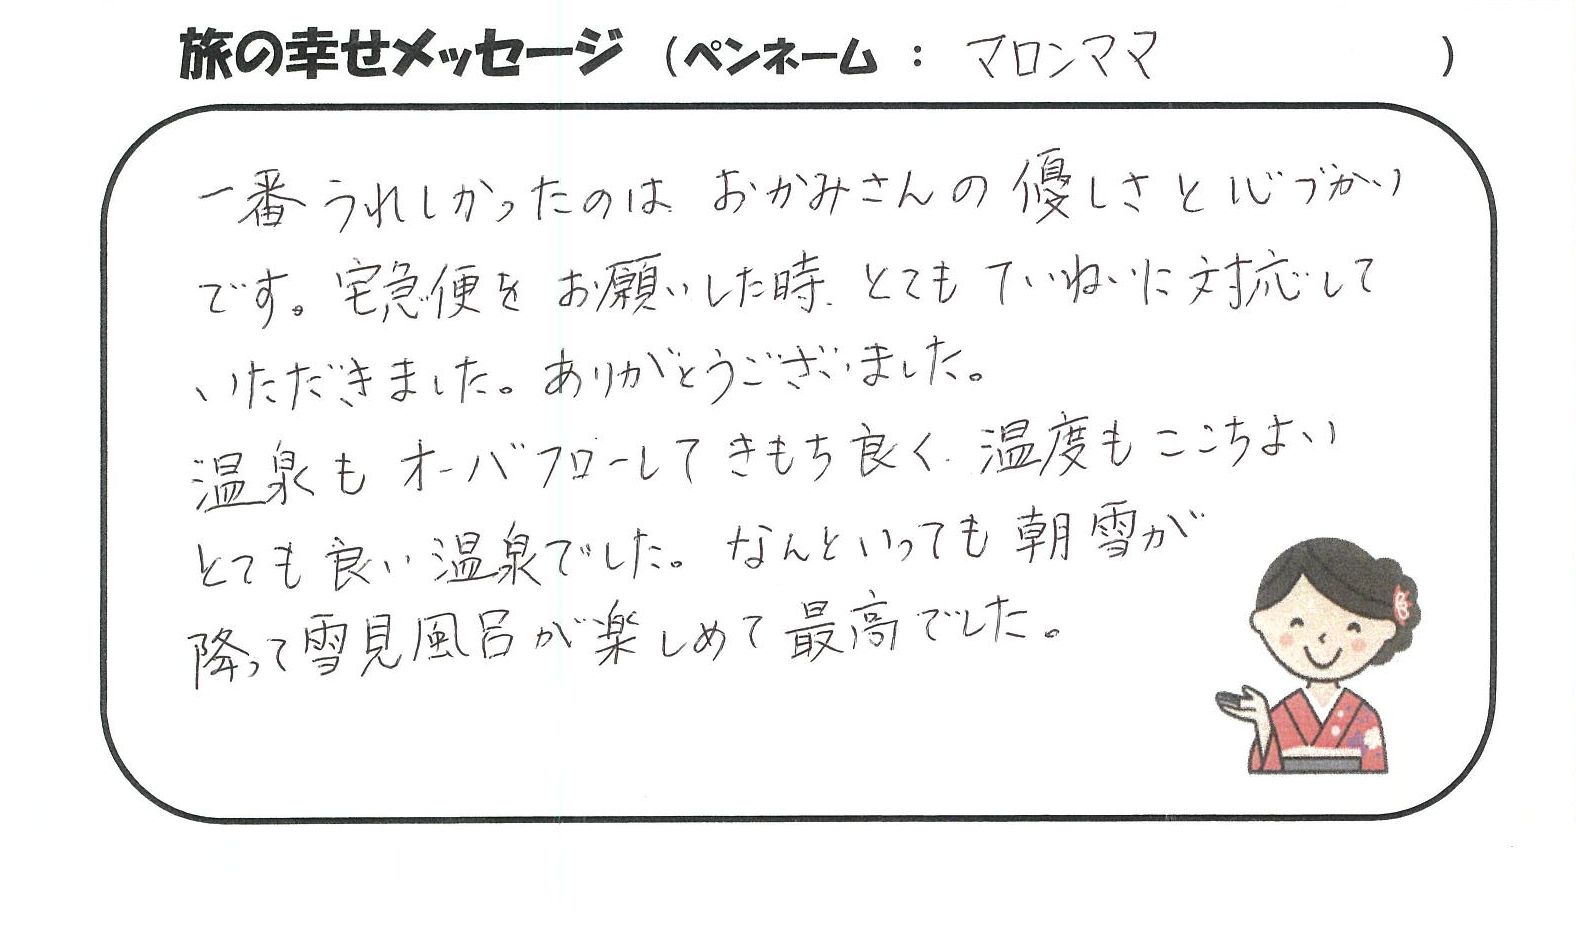 旅の幸せメッセージ (ペンネーム : マロンママ )
一番うれしかったのは、おかみさんの優しさと心づかい
です。宅急便をお願いした時、とてもていねいに対応して
いただきました。ありがとうございました。
温泉もオーバフローしてきもち良く、温度もここちよい
とても良い温泉でした。なんといっても朝雪が
降って雪見風呂が楽しめて最高でした。